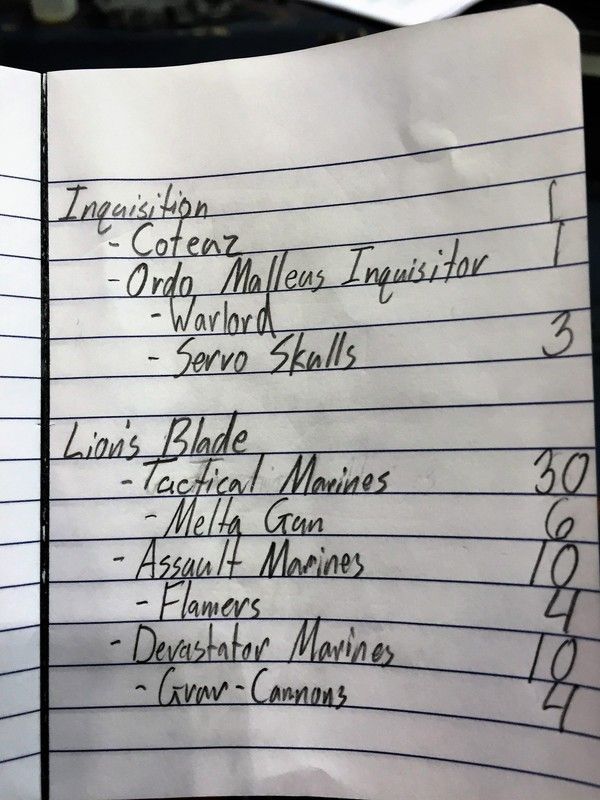 Inquisition
- Coteaz 1
- Ordo Malleus Inquisitor 1
- Warlord
- Servo Skulls 3
Lion's Blade
- Tactical Marines 30
- Melta Gun 6
- Assault Marines 10
- Flamers 4
- Devastator Marines 10
- Grav-Cannons 4